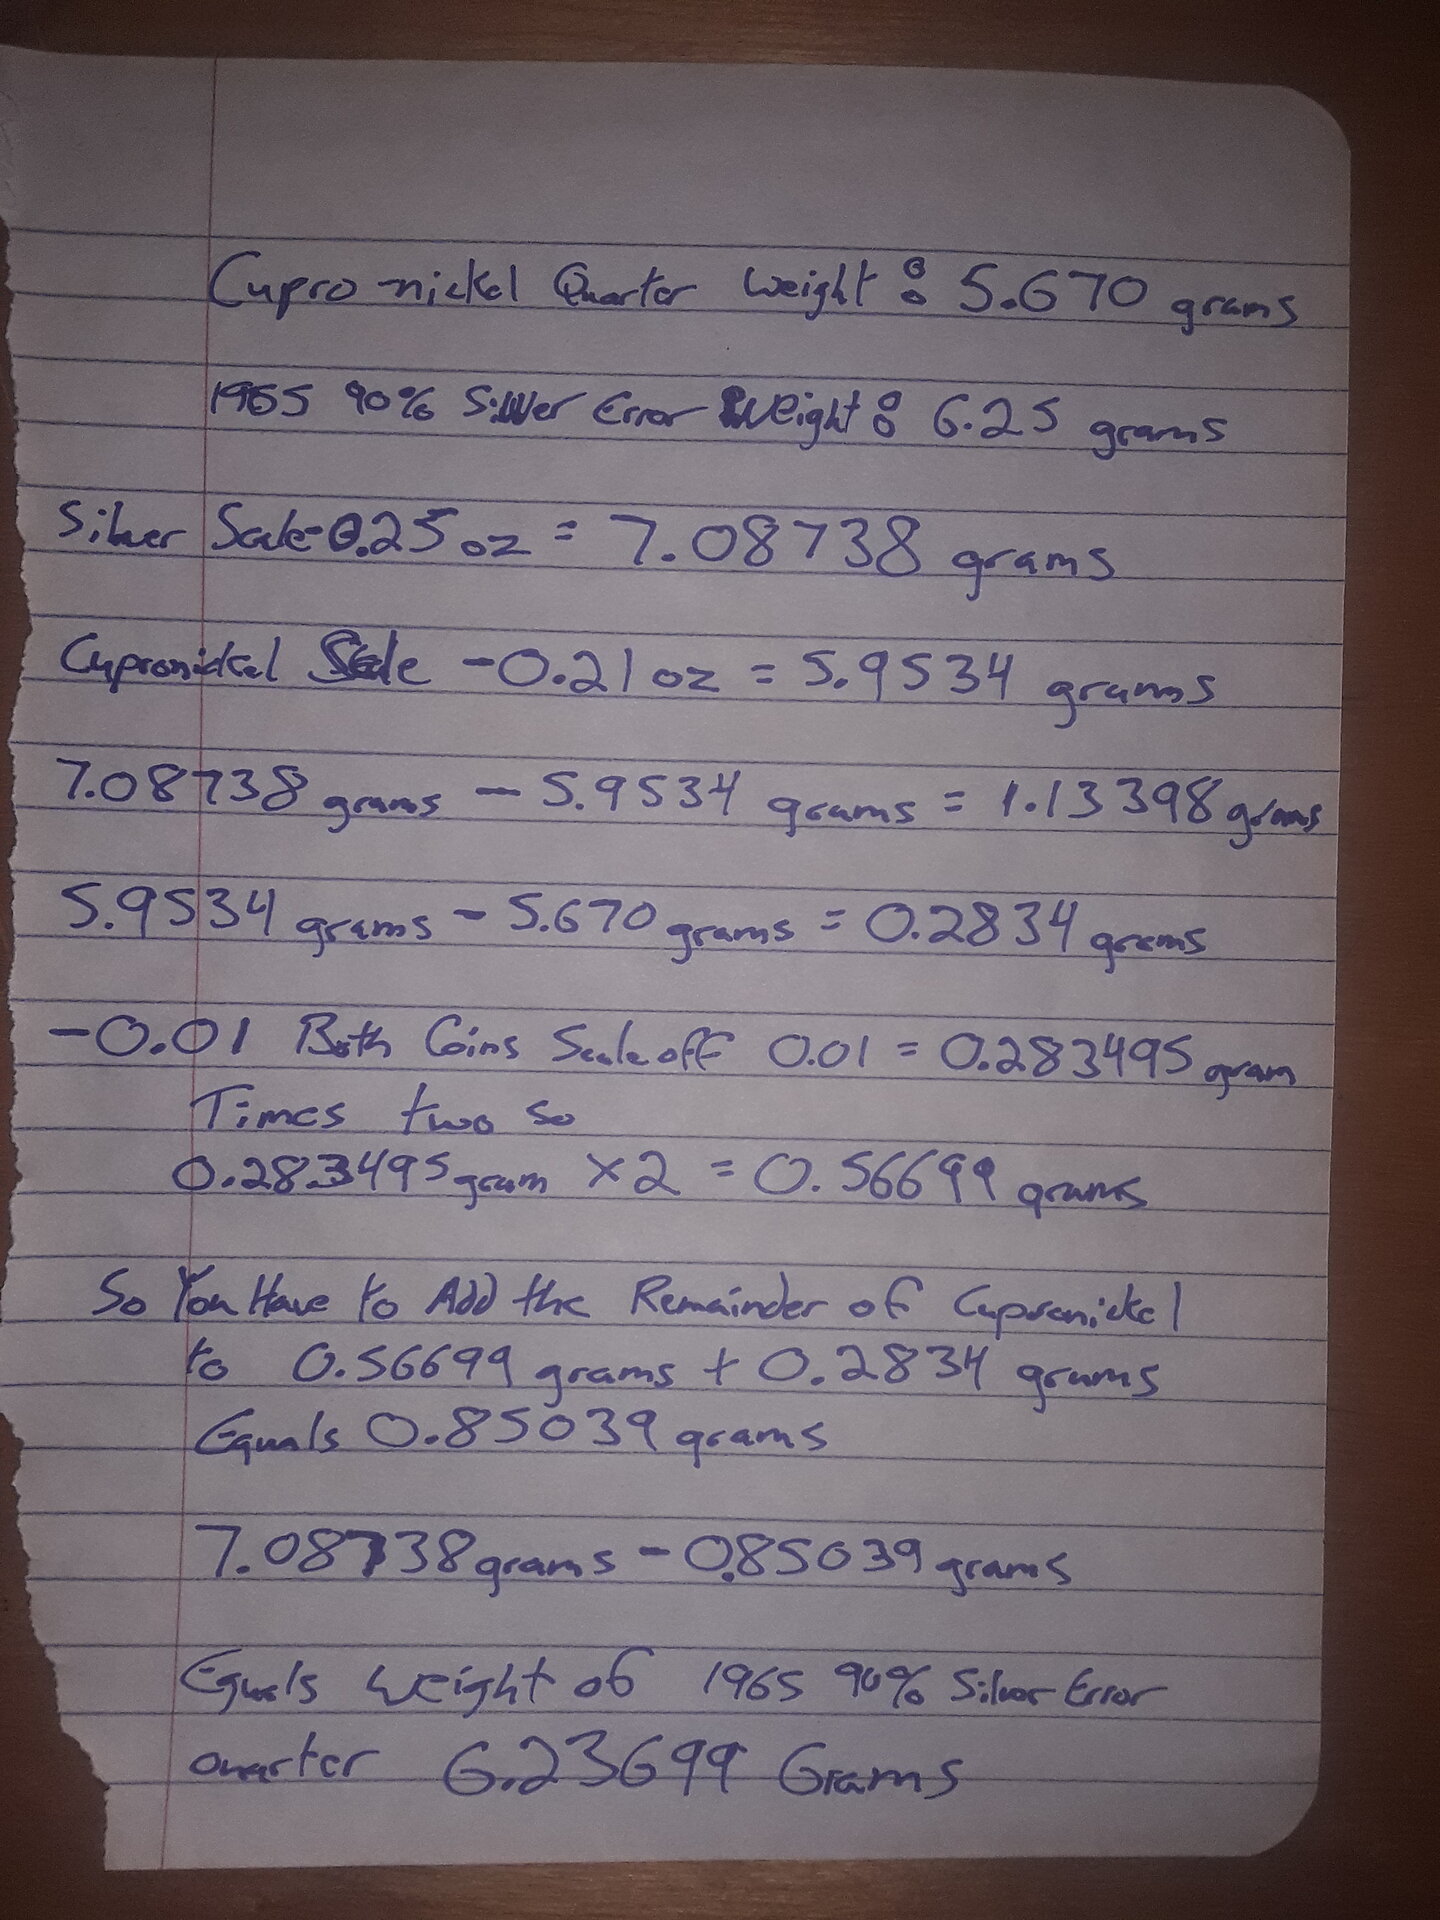 Cupro-nickel Quarter Weight: 5.670 grams
1965 90% Silver Error Weight: 6.25 grams
Silver Scale-0.25 oz = 7.08738 grams
Cupronickel Scale -0.21 oz = 5.9534 grams
7.08738 grams - 5.9534 grams = 1.13398 grams
5.9534 grams - 5.670 grams = 0.2834 grams
-0.01 Both Coins Scale off 0.01 = 0.283495 gram
Times two so
0.283495 gram x 2 = 0.56699 grams
So You Have to Add the Remainder of Cupronickel
to 0.56699 grams + 0.2834 grams
Equals 0.85039 grams
7.08738 grams - 0.85039 grams
Equals weight of 1965 90% Silver Error
quarter 6.23699 Grams